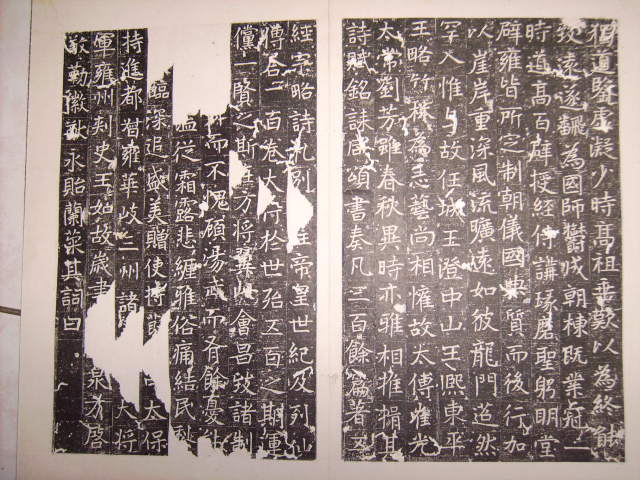 猶道豎虛凝少時高祖垂歎以為終能
致遠遂翻為國師鬱成朝棟既業冠一
時道高百辟授經侍講琢磨聖躬明堂
辟雍皆所定制朝儀國典質而後行加
以崖岸重深風流曠遠如彼龍門迢然
罕入惟与故任城王澄中山王熙東平
王略竹林為志藝尚相懽故太傅崔光
太常劉芳雖春秋異時亦雅相推揖其
詩賦銘誄咸頌書奏凡三百餘篇著五
經宗略詩礼別帝皇世紀及列仙
傳合一百卷大行於世殆五百之期運
儻一賢之斯方將冀此會昌致諸制
而不愧顧湯武而有餘憂
從霜露悲纏雅俗痛結民
臨深追盛美贈使持節太保
特進都督雍華岐三州諸大將
軍雍州刺史王如故歲書泉方啓
敢勒徽猷永貽蘭菊其詞曰